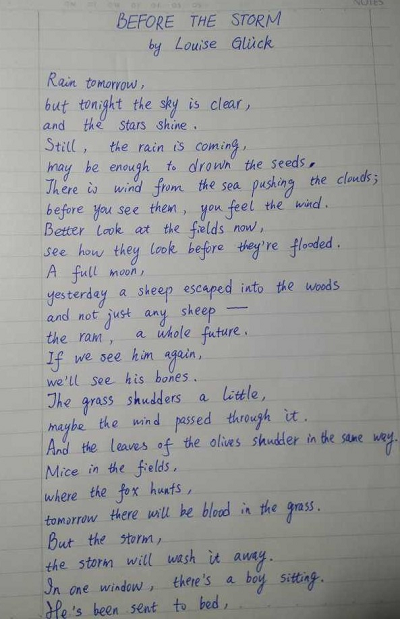 NOTES
BEFORE THE STORM
by Louise Glück
Rain tomorrow,
but tonight the sky is clear,
and the stars shine.
Still, the rain is coming,
may be enough to drown the seeds.
There is wind from the sea pushing the clouds;
before you see them, you feel the wind.
Better look at the fields now,
see how they look before they're flooded.
A full moon,
yesterday a sheep escaped into the woods
and not just any sheep —
the ram, a whole future.
If we see him again,
we'll see his bones.
The grass shudders a little,
maybe the wind passed through it.
And the leaves of the olives shudder in the same way.
Mice in the fields,
where the fox hunts,
tomorrow there will be blood in the grass.
But the storm,
the storm will wash it away.
In one window, there's a boy sitting.
He's been sent to bed,